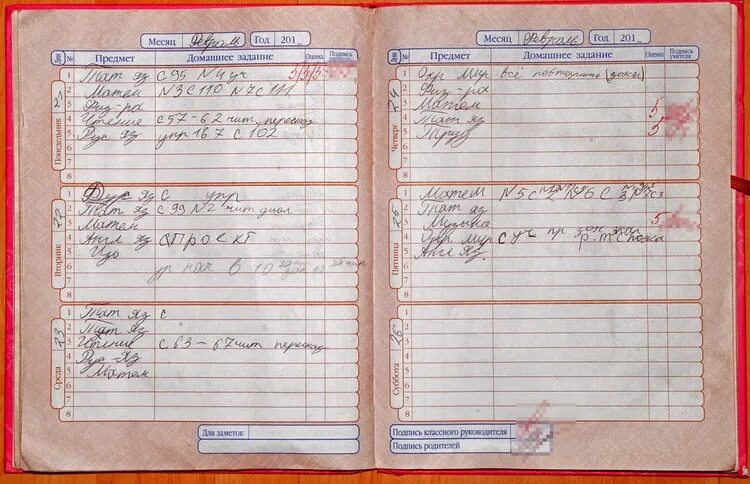 Месяц Февраль Год 201_
Дни № Предмет Домашнее задание Оценка Подпись учителя
Понедельник
1 Тат яз с 95 N4 уч 5/5/5
2 Матем N3 с 110 N7 с 111
3 Физ-ра
4 Чтение с 57-62 чит, переска
5 Рус яз упр 167 с 102
6
7
8
Вторник 22
1 Рус яз с упр
2 Тат яз с 99 N2 чит диал
3 Матем
4 Англ яз проект
5 Изо
6 ур нач в 10
7
8
Среда 23
1 Тат яз с
2 Тат яз
3 Чтение с. 63-67 чит переска
4 Рус-яз
5 Матем
6
7
8
Для заметок
Месяц Февраль Год 201_
Дни № Предмет Домашнее задание Оценка Подпись учителя
Четверг 24
1 Окр мир всё повторить
2 Физ-ра
3 Матем
4 Тат яз 5
5 Труд 5
6
7
8
Пятница 25
1 Матем N5 с
2 Тат яз
3 Музыка 5
4 Окр мир с уч
5 Англ яз.
6
7
8
Суббота 26
1
2
3
4
5
6
7
8
Подпись классного руководителя
Подпись родителей